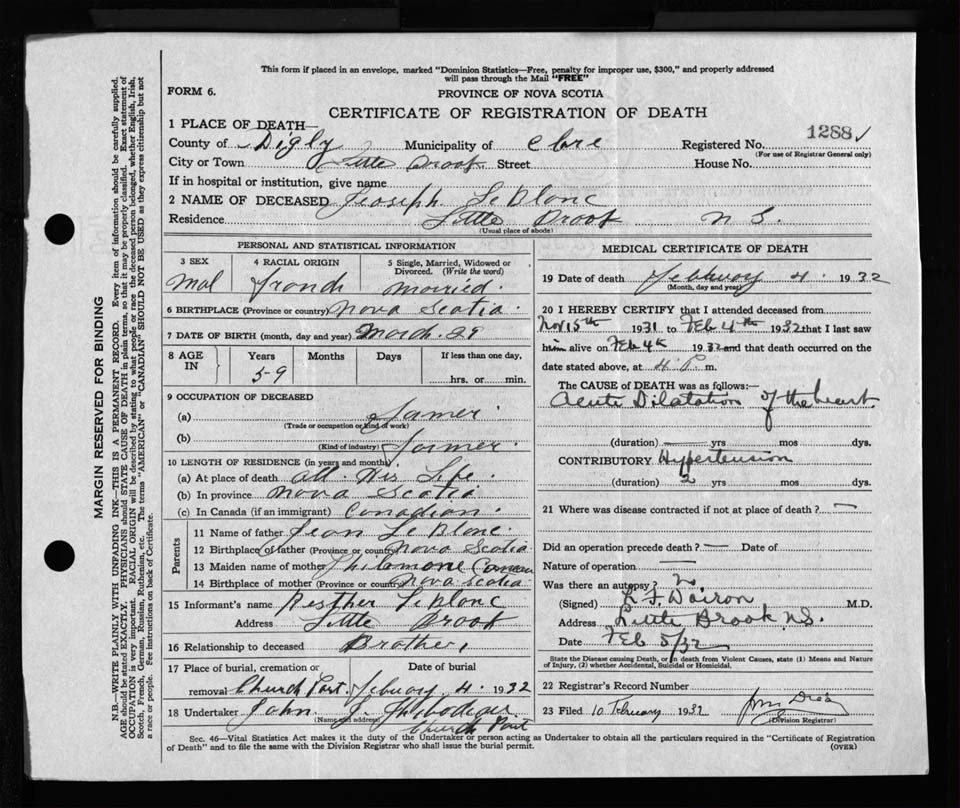 This form if placed in an envelope, marked "Dominion Statistics—Free, penalty for improper use, $300," and properly addressed
will pass through the Mail "FREE"
FORM 6.
PROVINCE OF NOVA SCOTIA
CERTIFICATE OF REGISTRATION OF DEATH
1288
1 PLACE OF DEATH—
County of Digby Municipality of Clare Registered No.
(For use of Registrar General only)
City or Town Little Brook Street House No.
If in hospital or institution, give name
2 NAME OF DECEASED Joseph Le Blonc
Residence Little Brook N S.
(Usual place of abode)
PERSONAL AND STATISTICAL INFORMATION
3 SEX 4 RACIAL ORIGIN 5 Single, Married, Widowed or
Divorced. (Write the word)
Mal french Married.
6 BIRTHPLACE (Province or country) Nova Scotia
7 DATE OF BIRTH (month, day and year) March. 29
8 AGE IN Years Months Days If less than one day,
59 hrs. or min.
9 OCCUPATION OF DECEASED
(a) Farmer
(Trade or occupation or kind of work)
(b) Farmer.
(Kind of industry)
10 LENGTH OF RESIDENCE (in years and months)
(a) At place of death All. His Life.
(b) In province Nova Scotia
(c) In Canada (if an immigrant) Canadian.
Parents
11 Name of father Jean Le Blonc.
12 Birthplace of father (Province or country) Nova Scotia
13 Maiden name of mother Philomone Comeau
14 Birthplace of mother (Province or country) Nova Scotia
15 Informant's name Le Blonc
Address Little Brook
16 Relationship to deceased Brother,
17 Place of burial, cremation or Date of burial
removal Church Point. February 4. 1932
18 Undertaker John J. Thibodeau
(Name and address) Church Point
MEDICAL CERTIFICATE OF DEATH
19 Date of death February 4. 1932
(Month, day and year)
20 I HEREBY CERTIFY that I attended deceased from
Nov 15th 1931 to Feb 4th 1932 that I last saw
him alive on Feb 4th 1932 and that death occurred on the
date stated above, at 4 P. m.
The CAUSE of DEATH was as follows:—
Acute Dilatation of the heart
(duration) yrs mos dys.
CONTRIBUTORY Hypertension
(duration) 2 yrs mos. dys.
21 Where was disease contracted if not at place of death? —
Did an operation precede death? — Date of
Nature of operation —
Was there an autopsy? no
(Signed) M.D.
Address Little Brook N.S.
Date Feb 5/32
State the Disease causing Death, or in death from Violent Causes, state (1) Means and Nature
of Injury, (2) whether Accidental, Suicidal or Homicidal.
22 Registrar's Record Number
23 Filed 10 February 1932
(Division Registrar)
Sec. 46—Vital Statistics Act makes it the duty of the Undertaker or person acting as Undertaker to obtain all the particulars required in the "Certificate of Registration
of Death" and to file the same with the Division Registrar who shall issue the burial permit.
(OVER)
MARGIN RESERVED FOR BINDING
N.B.—WRITE PLAINLY WITH UNFADING INK—THIS IS A PERMANENT RECORD. Every item of information should be carefully supplied.
AGE should be stated EXACTLY. PHYSICIANS should STATE CAUSE OF DEATH in plain terms, so that it may be properly classified. Exact statement of
OCCUPATION is very important. RACIAL ORIGIN will be described by stating to what people or race the deceased person belonged, whether English, Irish,
Scotch, French, German, Russian, Ruthenian, etc. The terms "AMERICAN" or "CANADIAN" SHOULD NOT BE USED as they express citizenship but not
a race or people. See instructions on back of Certificate.